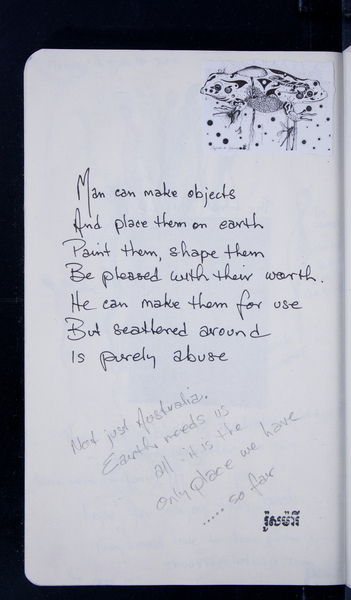 Man can make objects
And place them on earth
Paint them, shape them
Be pleased with their worth.
He can make them for use
But scattered around
Is purely abuse
Not just Australia.
Earth needs us
all : it is the
only place we have
..... so far
រ៉ូសម៉ារី